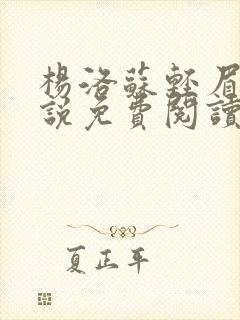 楊洛蘇輕眉
說免費閱讀
夏正平